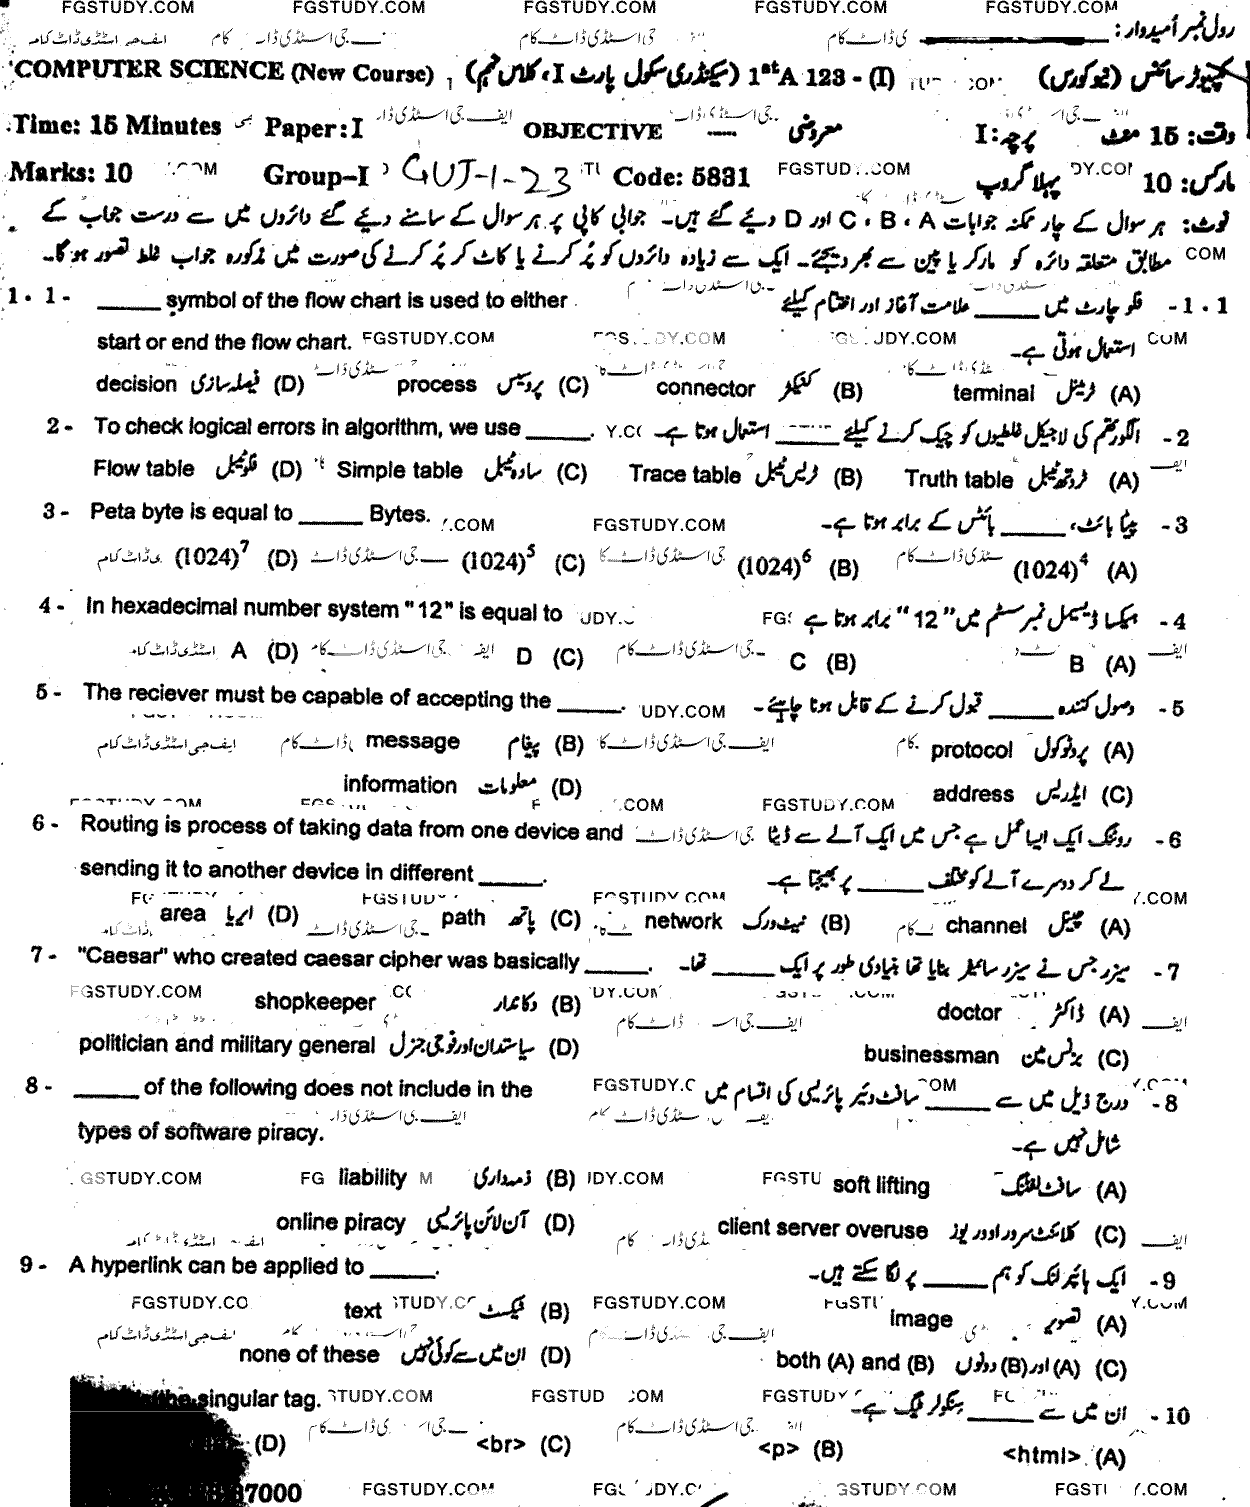 FGSTUDY.COM FGSTUDY.COM FGSTUDY.COM FGSTUDY.COM FGSTUDY.COM
رول نمبر اُمیدوار :
COMPUTER SCIENCE (New Course) (سیکنڈری سکول پارٹ I، کلاس نہم) 1st A 123 - (I) کمپیوٹر سائنس (نیو کورس)
Time: 15 Minutes Paper: I OBJECTIVE ---- معروضی پرچہ: I وقت: 15 منٹ
Marks: 10 Group-I GUJ-1-23 Code: 5831 FGSTUDY.COM پہلا گروپ مارکس: 10
نوٹ: ہر سوال کے چار ممکنہ جوابات A ، B ، C اور D دیئے گئے ہیں۔ جوابی کاپی پر ہر سوال کے سامنے دیئے گئے دائروں میں سے درست جواب کے
مطابق متعلقہ دائرہ کو مارکر یا پین سے بھر دیجئے۔ ایک سے زیادہ دائروں کو پُر کرنے یا کاٹ کر پُر کرنے کی صورت میں مذکورہ جواب غلط تصور ہو گا۔
1 . 1 - _____ symbol of the flow chart is used to either فلو چارٹ میں _____ علامت آغاز اور اختتام کیلئے 1 . 1 -
start or end the flow chart. FGSTUDY.COM استعمال ہوتی ہے۔
decision فیصلہ سازی (D) process پروسیس (C) connector کنیکٹر (B) terminal ٹرمینل (A)
2 - To check logical errors in algorithm, we use _____. الگورتھم کی لاجیکل غلطیوں کو چیک کرنے کیلئے _____ استعمال ہوتا ہے۔ 2 -
Flow table فلو ٹیبل (D) Simple table سادہ ٹیبل (C) Trace table ٹریس ٹیبل (B) Truth table ٹروتھ ٹیبل (A)
3 - Peta byte is equal to _____ Bytes. FGSTUDY.COM پیٹا بائٹ، _____ بائٹس کے برابر ہوتا ہے۔ 3 -
(1024)⁷ (D) (1024)⁵ (C) (1024)⁶ (B) (1024)⁴ (A)
4 - In hexadecimal number system "12" is equal to ہیکسا ڈیسیمل نمبر سسٹم میں "12" برابر ہوتا ہے 4 -
A (D) D (C) C (B) B (A)
5 - The reciever must be capable of accepting the _____. وصول کنندہ _____ قبول کرنے کے قابل ہونا چاہیئے۔ 5 -
message پیغام (B) protocol پروٹوکول (A)
information معلومات (D) address ایڈریس (C)
FGSTUDY.COM
6 - Routing is process of taking data from one device and روٹنگ ایک ایسا عمل ہے جس میں ایک آلے سے ڈیٹا 6 -
sending it to another device in different _____. لے کر دوسرے آلے کو مختلف _____ پر بھیجتا ہے۔
area ایریا (D) path پاتھ (C) network نیٹ ورک (B) channel چینل (A)
7 - "Caesar" who created caesar cipher was basically _____. سیزر جس نے سیزر سائفر بنایا تھا بنیادی طور پر ایک _____ تھا۔ 7 -
FGSTUDY.COM shopkeeper دکاندار (B) doctor ڈاکٹر (A)
politician and military general سیاستدان اور فوجی جنرل (D) businessman بزنس مین (C)
8 - _____ of the following does not include in the درج ذیل میں سے _____ سافٹ ویئر پائریسی کی اقسام میں 8 -
types of software piracy. شامل نہیں ہے۔
liability ذمہ داری (B) soft lifting سافٹ لفٹنگ (A)
online piracy آن لائن پائریسی (D) client server overuse کلائنٹ سرور اوور یوز (C)
9 - A hyperlink can be applied to _____. ایک ہائپر لنک کو ہم _____ پر لگا سکتے ہیں۔ 9 -
text ٹیکسٹ (B) FGSTUDY.COM image تصویر (A)
none of these ان میں سے کوئی نہیں (D) both (A) and (B) (A) اور (B) دونوں (C)
the singular tag. ان میں سے _____ سنگولر ٹیگ ہے۔ 10 -
(D) <br> (C) <p> (B) <html> (A)
37000 FGSTUDY.COM